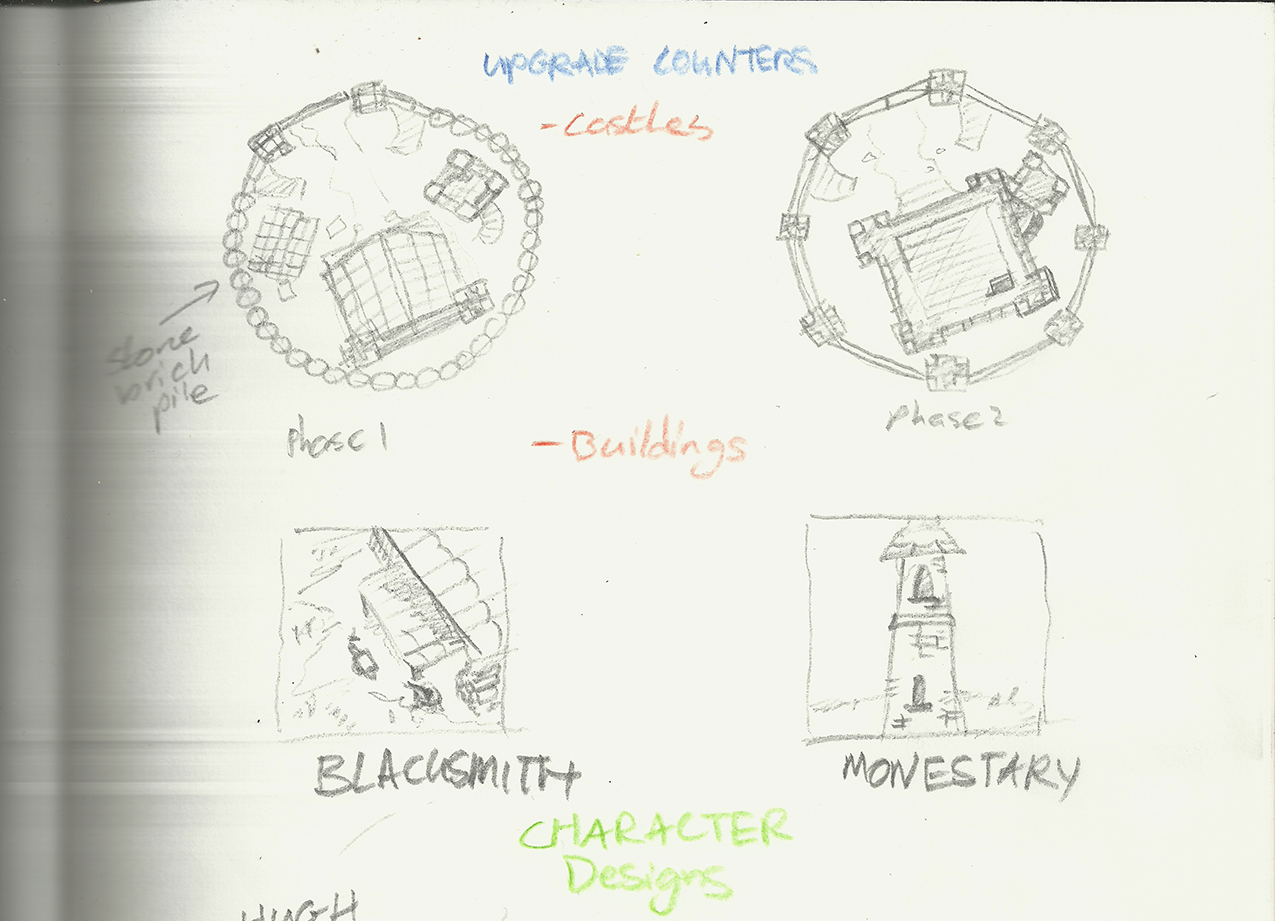 UPGRADE COUNTERS
-Castles
stone
brich
pile
phase 1
phase 2
-Buildings
BLACKSMITH
MONESTARY
CHARACTER
Designs
HUGH